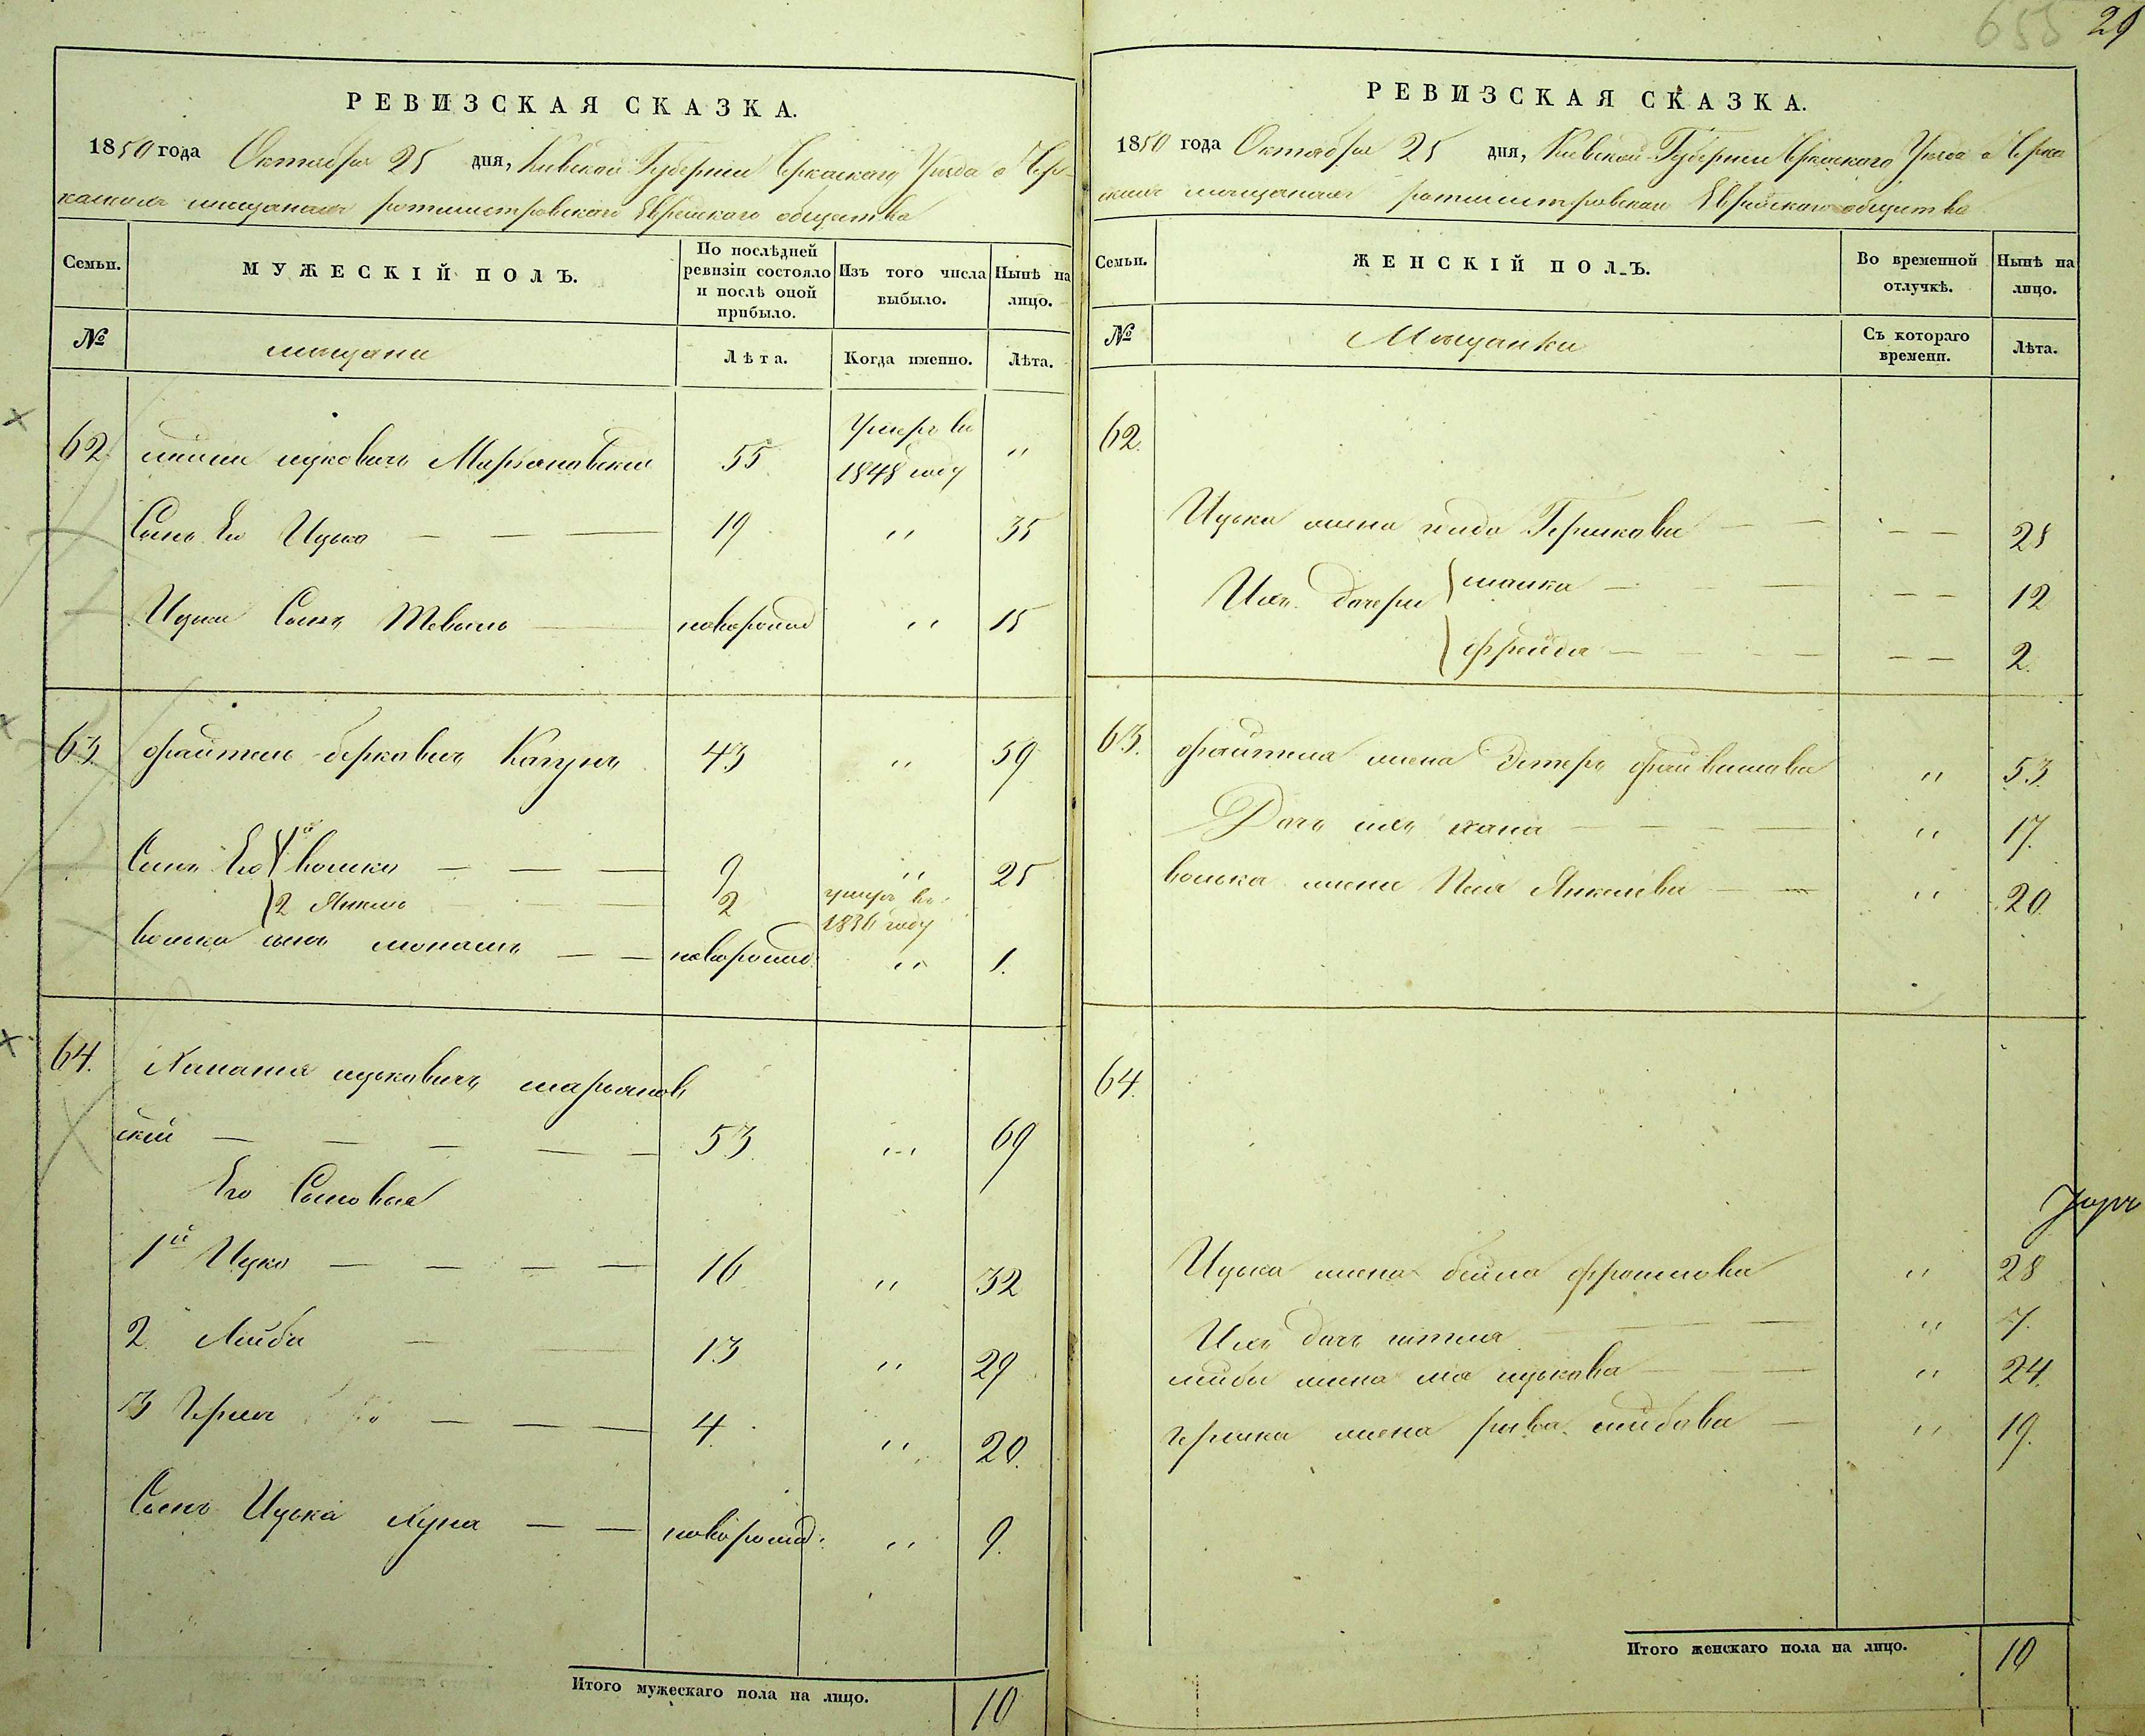 655 29
РЕВИЗСКАЯ СКАЗКА.
1850 года Октября 25 дня, Киевской Губернии Черкаскаго Уезда о Чер-
каскихъ мещанахъ ротмистровскаго Еврейскаго общества
Семьи.
МУЖЕСКІЙ ПОЛЪ.
По послѣдней ревизіи состояло и послѣ оной прибыло.
Изъ того числа выбыло.
Нынѣ на лицо.
№
мещане
Лѣта.
Когда именно.
Лѣта.
62 ицковичъ Марьяновский 55 Умеръ въ 1848 году "
Сынъ Его Ицько — — — 19 " 35
Ицки Сынъ — новорожд " 15
63. файтель беркович Каганъ 43 " 59
Сынъ Его 1й волько — — — 9 " 25
2 Янкель 2 умеръ въ 1836 году
волька сынъ монашъ — — новорожд. " 1.
64. ицькович марьянов
ский — — — — — 53. " 69
Его Сыновья
1й Ицко — — — — 16 " 32
2. Лейба — 13 " 29
3 Герш — — — 4. " 20.
Сынъ Ицька — — новорожд. " 9.
Итого мужескаго пола на лицо. 10
РЕВИЗСКАЯ СКАЗКА.
1850 года Октября 25 дня, Киевской Губернии Черкаскаго Уезда о Черка
скихъ мещанахъ ротмистровскаго Еврейскаго общества
Семьи.
ЖЕНСКІЙ ПОЛЪ.
Во временной отлучкѣ.
Нынѣ на лицо.
№
Мещанки
Съ котораго времени.
Лѣта.
62.
Ицька жена Гершкова — — — —
Ихъ дочери — — — — 12
фрейда — — — — — 2.
63. файтеля жена Эстеръ файвишова " 53.
Дочь ихъ хана — — — — " 17.
волька жена Янкелева — — " 20.
64.
Ицька жена бейла " 28
Ихъ дочь — — — " 7.
лейбы жена ицькова — — — " 24.
гершка жена рива лейбова — " 19.
Итого женскаго пола на лицо. 10